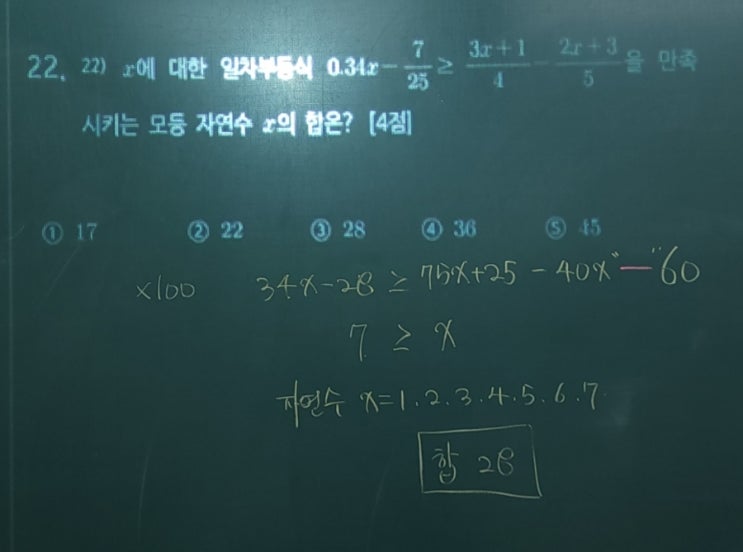 22. 22) x에 대한 일차부등식 0.34x - 7/25 ≥ (3x+1)/4 - (2x+3)/5 을 만족
시키는 모등 자연수 x의 합은? [4점]
① 17 ② 22 ③ 28 ④ 36 ⑤ 45
×100 34x-28 ≥ 75x+25 - 40x"-"60
7 ≥ x
자연수 x=1.2.3.4.5.6.7
합 28